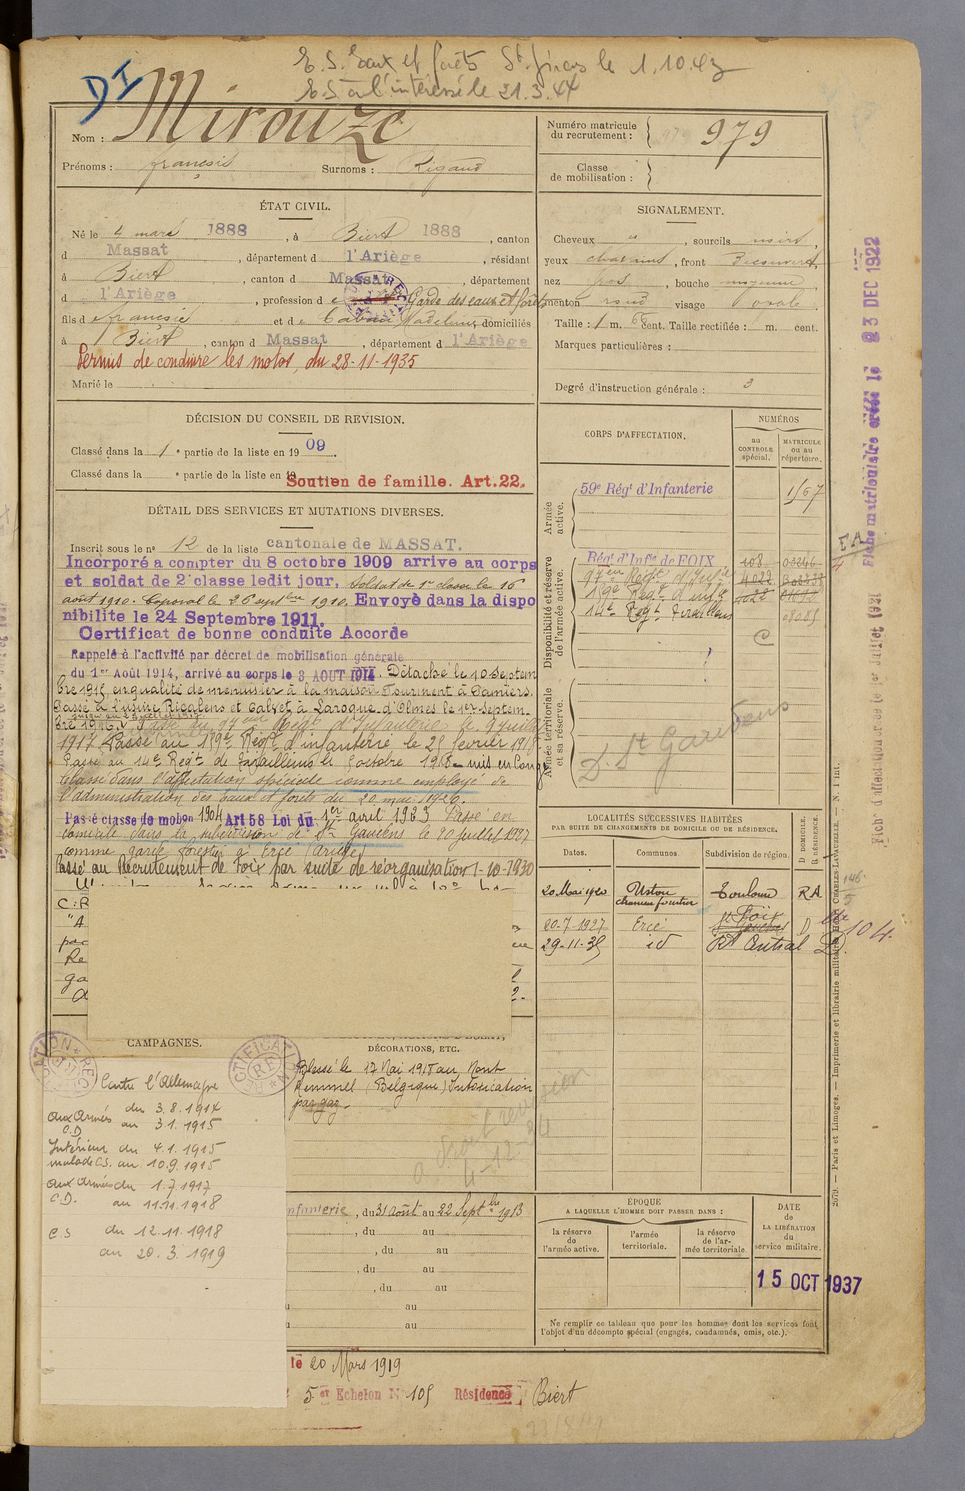 E.S. Eaux et forêts St. Girons le 1.10.43
E.S. à l'intéressé le 21.3.44
DI
Nom : Mirouze
Prénoms : François Surnoms : Rigaud
Numéro matricule
du recrutement : 979
Classe
de mobilisation :
ÉTAT CIVIL.
Né le 4 mars 1888, à Biert 1888, canton
d Massat, département d l'Ariège, résidant
à Biert, canton d Massat, département
d l'Ariège, profession d e Garde des eaux et forêts
fils d e François et d e Madeleine, domiciliés
à Biert, canton d Massat, département d l'Ariège
Permis de conduire les motos, du 28-11-1935
Marié le
SIGNALEMENT.
Cheveux , sourcils noirs,
yeux chatains, front Découvert,
nez gros, bouche moyenne,
menton rond visage ovale.
Taille : 1 m. cent. Taille rectifiée : m. cent.
Marques particulières :
Degré d'instruction générale : 3
DÉCISION DU CONSEIL DE REVISION.
Classé dans la 1 e partie de la liste en 1909.
Classé dans la e partie de la liste en 19
Soutien de famille. Art.22.
DÉTAIL DES SERVICES ET MUTATIONS DIVERSES.
Inscrit sous le no 12 de la liste cantonale de MASSAT.
Incorporé a compter du 8 octobre 1909 arrive au corps
et soldat de 2e classe ledit jour. Soldat de 1re classe le 16
août 1910. Caporal le 26 septbre 1910. Envoyé dans la dispo
nibilite le 24 Septembre 1911.
Certificat de bonne conduite Accorde
Rappelé à l'activité par décret de mobilisation générale
du 1er Août 1914, arrivé au corps le 3 AOUT 1914. Détaché le 10 Septem
bre 1915 en qualité de menuisier à la maison Fourment à Pamiers.
Passé à l'usine Ricalens et Calvet à Laroque d'Olmes le 1er Septem
bre 1916. Passé au 97eme Régt d'Infanterie le 9 juillet
1917. Passé au 159e Régt d'infanterie le 25 février 1918
Passé au 14e Régt de Tirailleurs le octobre 1918 - mis en Congé
Classé dans l'affectation spéciale comme employé de
l'administration des Eaux et forêts du 20 mai 1920.
Passé classe de mobon 1904 Art 58 Loi du 1er avril 1923 Passé en
domicile dans la subdivision de St Gaudens le 20 juillet 1927
comme garde forestier à Ercé (Ariège)
Passé au Recrutement de Foix par suite de réorganisation 1-10-1930
CORPS D'AFFECTATION.
NUMÉROS
au
CONTROLE
spécial.
MATRICULE
ou au
répertoire.
Armée
active.
59e Régt d'Infanterie
Disponibilité et réserve
de l'armée active.
Régt d'Infie de FOIX 108
97eme Régt d'Infie 4022
159e Régt d'Infie
14e Régt Tirailleurs
C
Armée territoriale
et sa réserve.
D. St Gaudens
LOCALITÉS SUCCESSIVES HABITÉES
PAR SUITE DE CHANGEMENTS DE DOMICILE OU DE RÉSIDENCE.
Dates. Communes. Subdivision de région. D DOMICILE. R RÉSIDENCE.
20 Mai 1920 Ustou Toulouse RA
20-7-1927 Ercé St Gaudens Foix D
29-11-35 id Rt Central D.
104
CAMPAGNES.
Contre l'Allemagne
aux Armées du 3.8.1914
C.D au 3.1.1915
Intérieur du 4.1.1915
malade C.S. au 10.9.1915
aux armées du 1.7.1917
C.D. au 11.11.1918
C.S du 12.11.1918
au 20.3.1919
DÉCORATIONS, ETC.
Blessé le 17 Mai 1918 au Mont
Kemmel (Belgique) Intoxication
par gaz.
nfanterie, du 31 août au 22 Septbre 1913
, du au
, du au
, du au
, du au
au
au
ÉPOQUE
A LAQUELLE L'HOMME DOIT PASSER DANS :
la réserve
de
l'armée active.
l'armée
territoriale.
la réserve
de l'ar-
mée territoriale.
DATE
de
LA LIBÉRATION
du
service militaire.
15 OCT 1937
Ne remplir ce tableau que pour les hommes dont les services font
l'objet d'un décompte spécial (engagés, condamnés, omis, etc.).
le 20 Mars 1919
5 er Echelon No 105 Résidence Biert
Fiche matriculaire créée le 23 DEC 1922
2079. — Paris et Limoges. — Imprimerie et librairie militaires Henri CHARLES-LAVAUZELLE. — N. 1 int.